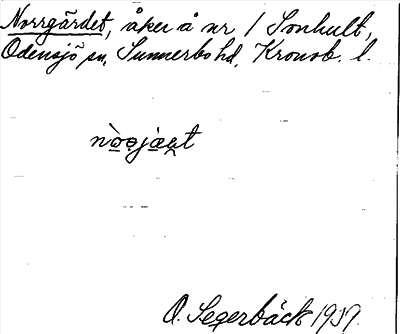 Norrgärdet, åker å nr 1 Sonhult,
Odensjö sn, Sunnerbo hd, Kronob. l.
O. Segerbäck 1937.